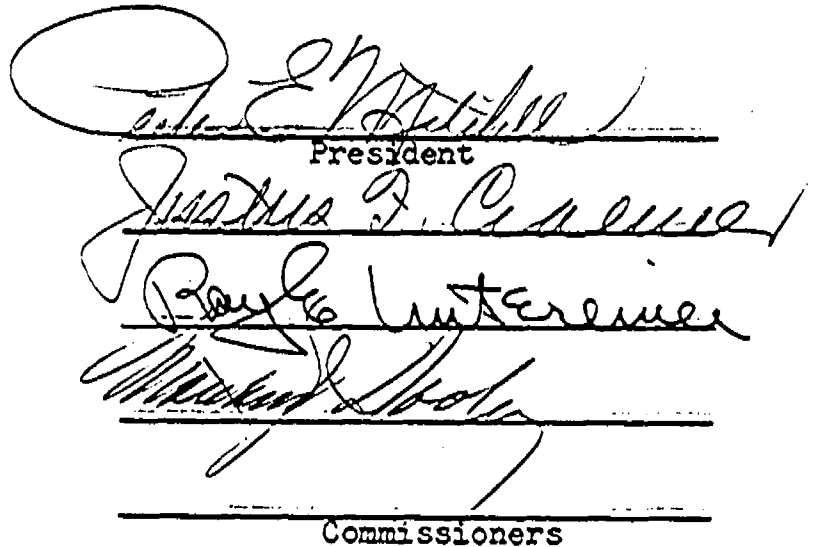 E. Mitchell
President
Justus F. Craemer
Ray E. Untereiner
Commissioners